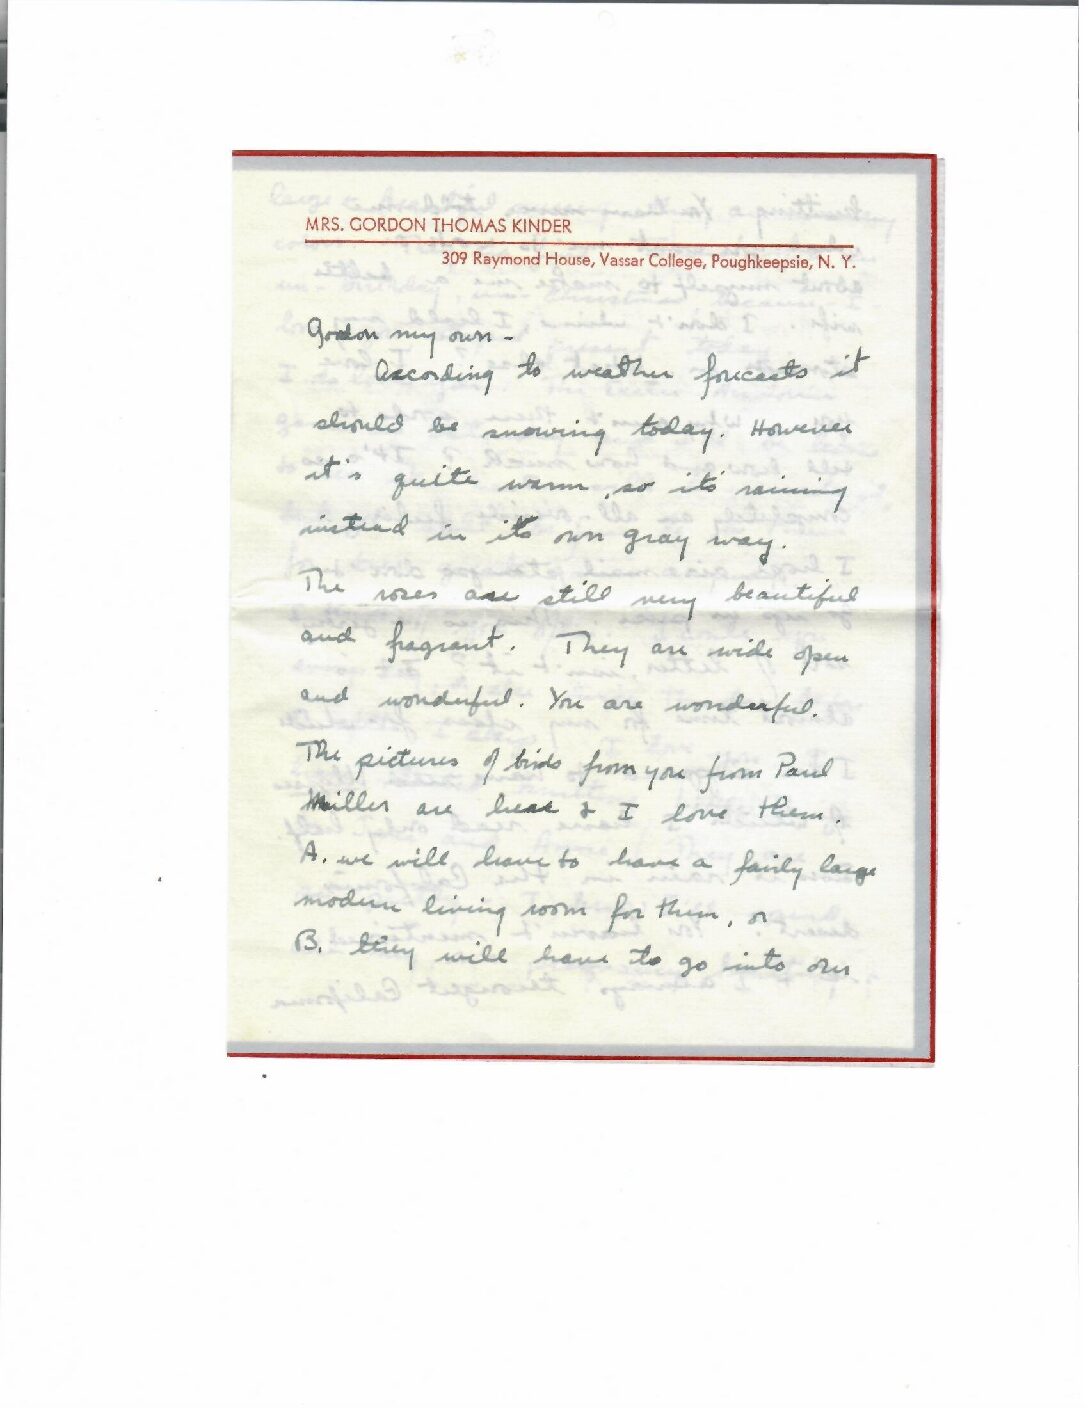 MRS. GORDON THOMAS KINDER
309 Raymond House, Vassar College, Poughkeepsie, N. Y.
Gordon my own -
According to weather forecasts it
should be snowing today. However
it's quite warm, so its raining
instead in its own gray way.
The roses are still very beautiful
and fragrant. They are wide open
and wonderful. You are wonderful.
The pictures of birds from you from Paul
Miller are hear & I love them.
A. we will have to have a fairly large
modern living room for them, or
B. they will have to go into our